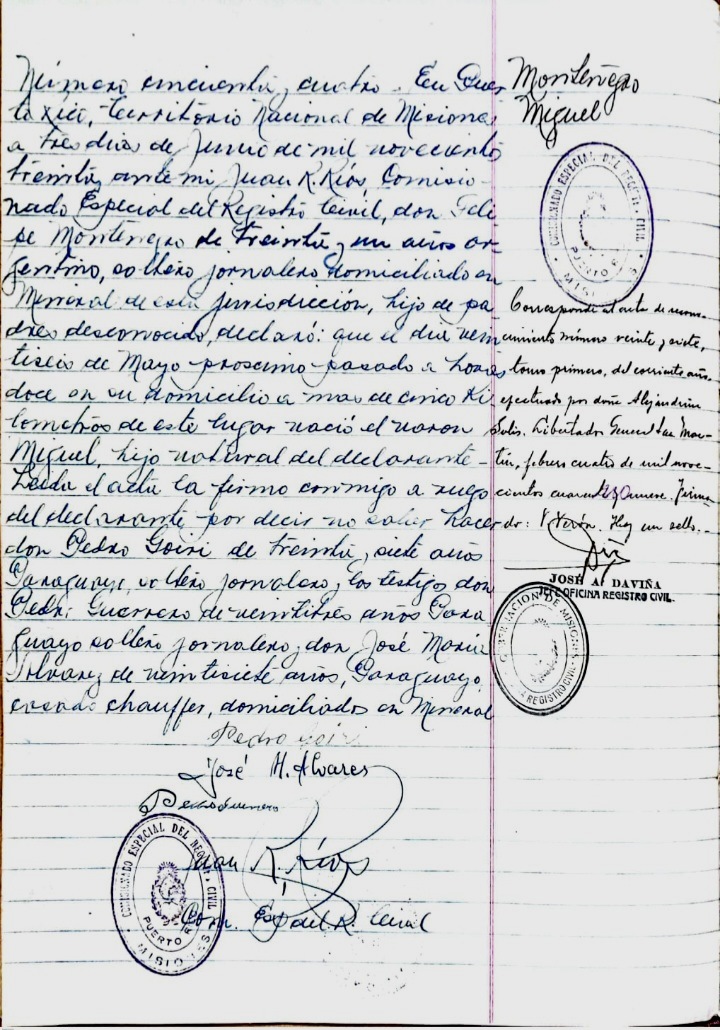 Número cincuenta y cuatro. En Puer
to Rico, Territorio Nacional de Misiones
a tres dias de Junio de mil novecientos
treinta, ante mi Juan R. Ríos, Comisio-
nado Especial del Registro Civil, don Feli
pe Montenegro de treinta y un años ar-
gentino, soltero jornalero domiciliado en
Mineral de esta jurisdicción, hijo de pa-
dres desconocido, declaró: que el dia vein
tiseis de Mayo proscimo pasado a horas
doce en su domicilio a mas de cinco ki
lometros de este lugar nació el varon
Miguel, hijo natural del declarante-
Leida el acta la firmo conmigo a ruego
del declarante por decir no saber hacer
don Pedro Goiri de treinta y siete años
Paraguayo, soltero jornalero y los testigos don
Pedro Guerrero de veintitres años Para
guayo soltero jornalero y don José Maria
Alvarez de veintisiete años, Paraguayo,
casado chauffer, domiciliados en Mineral
Pedro Goiri
José M. Alvares
Pedro Guerrero
Juan R. Ríos
Com. Esp. del R. Civil
COMISIONADO ESPECIAL DEL REGISTRO CIVIL
PUERTO R
MISIONES
Montenegro
Miguel
COMISIONADO ESPECIAL DEL REGISTRO CIVIL
PUERTO R
MISIONES
Corresponde al acta de recono-
cimiento número veinte y siete,
tomo primero, del corriente año
efectuado por doña Alejandrina
Solis. Libertador General San Mar-
tin, febrero cuatro de mil nove-
cientos cuarenta y nueve. Firma-
do: V. Verón. Hay un sello.-
JOSE A. DAVIÑA
JEFE OFICINA REGISTRO CIVIL
GOBERNACION DE MISIONES
REGISTRO CIVIL